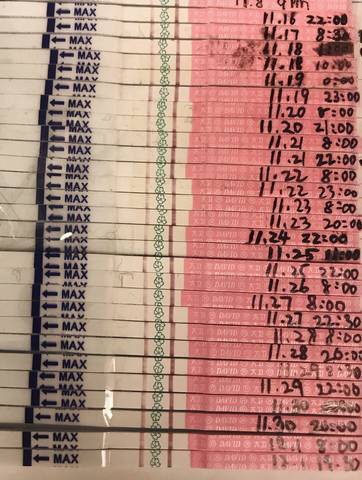 11.8 9
← MAX 11.16 22:00
← MAX 11.17 8:30
← MAX 11.18
← MAX 11.18 10:00
← MAX 11.19 0:00
← MAX 11.19 23:00
← MAX 11.20 8:00
← MAX 11.20 21:00
← MAX 11.21 8:00
← MAX 11.21 22:00
← MAX 11.22 8:00
← MAX 11.22 23:00
← MAX 11.23 8:00
← MAX 11.23 20:00
← MAX 11.24 22:00
← MAX 11.25 11:00
← MAX 11.25 22:00
← MAX 11.26 8:00
← MAX DAVID 11.27 8:00
← MAX DAVID 11.27 22:30
← MAX DAVID 11.28 8:00
← MAX DAVID 11.28 20:00
← MAX DAVID 8:00
← MAX DAVID 11.29 22:00
← MAX DAVID 11.30
← MAX DAVID 11.30 20:00
← MAX DAVID 8:00
← MAX DAVID